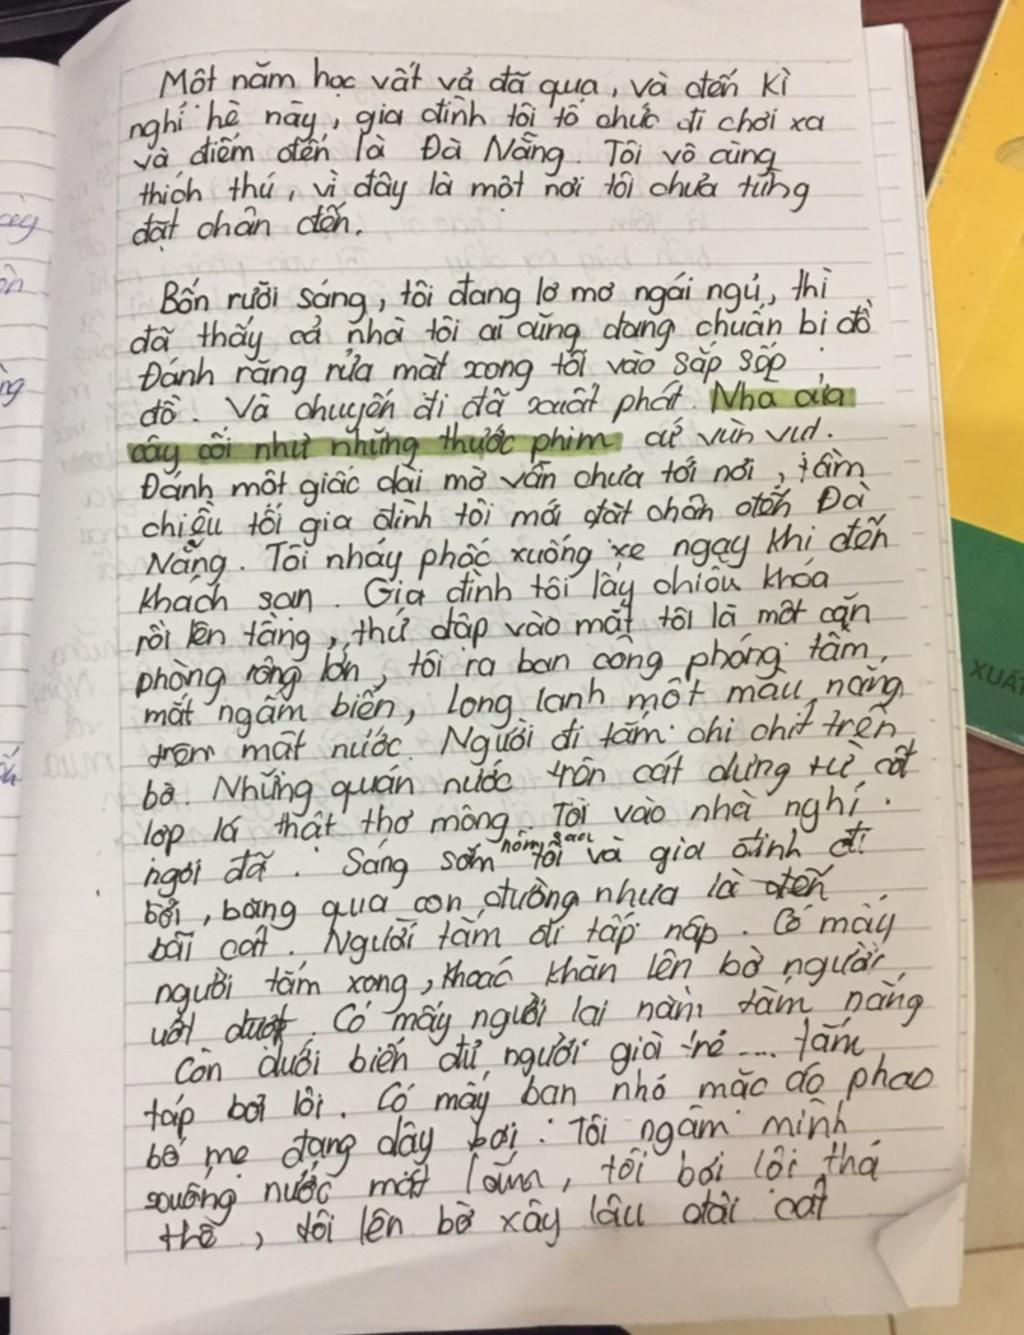 Một năm học vất vả đã qua, và đến kì
nghỉ hè này, gia đình tôi tổ chức đi chơi xa
và điểm đến là Đà Nẵng. Tôi vô cùng
thích thú, vì đây là một nơi tôi chưa từng
đặt chân đến.
Bốn rưỡi sáng, tôi đang lơ mơ ngái ngủ, thì
đã thấy cả nhà tôi ai cũng đang chuẩn bị đồ
Đánh răng rửa mặt xong tôi vào sắp sếp
đồ. Và chuyến đi đã xuất phát. Nhà cửa
cây cối như những thước phim cứ vùn vụt.
Đánh một giấc dài mờ vẫn chưa tới nơi, tầm
chiều tối gia đình tôi mới đặt chân đến Đà
Nẵng. Tôi nhảy phốc xuống xe ngay khi đến
khách sạn. Gia đình tôi lấy chiều khóa
rồi lên tầng, thứ đập vào mắt tôi là một căn
phòng rộng lớn, tôi ra ban công phóng tầm
mắt ngắm biển, long lanh một màu nắng
trên mặt nước. Người đi tắm chi chít trên
bờ. Những quán nước trên cát dựng từ cột
lợp lá thật thơ mộng. Tôi vào nhà nghỉ
ngơi đã. Sáng sớm hôm sau tôi và gia đình đi
bơi, băng qua con đường nhựa là đến
bãi cát. Người tắm đi tấp nập. Có mấy
người tắm xong, khoác khăn lên bờ người
ướt dượt. Có mấy người lại nằm tắm nắng
Còn dưới biển đủ người già trẻ.... tắm
táp bơi lội. Có mấy bạn nhỏ mặc áo phao
bố mẹ đang dạy bơi. Tôi ngâm mình
xuống nước mát lắm, tôi bơi lội thả
thê, tôi lên bờ xây lâu đài cát
XUẤT